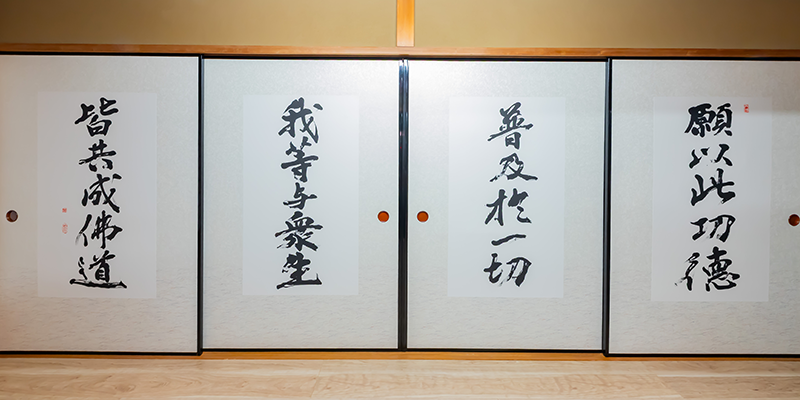 願以此功徳
普及於一切
我等与衆生
皆共成佛道